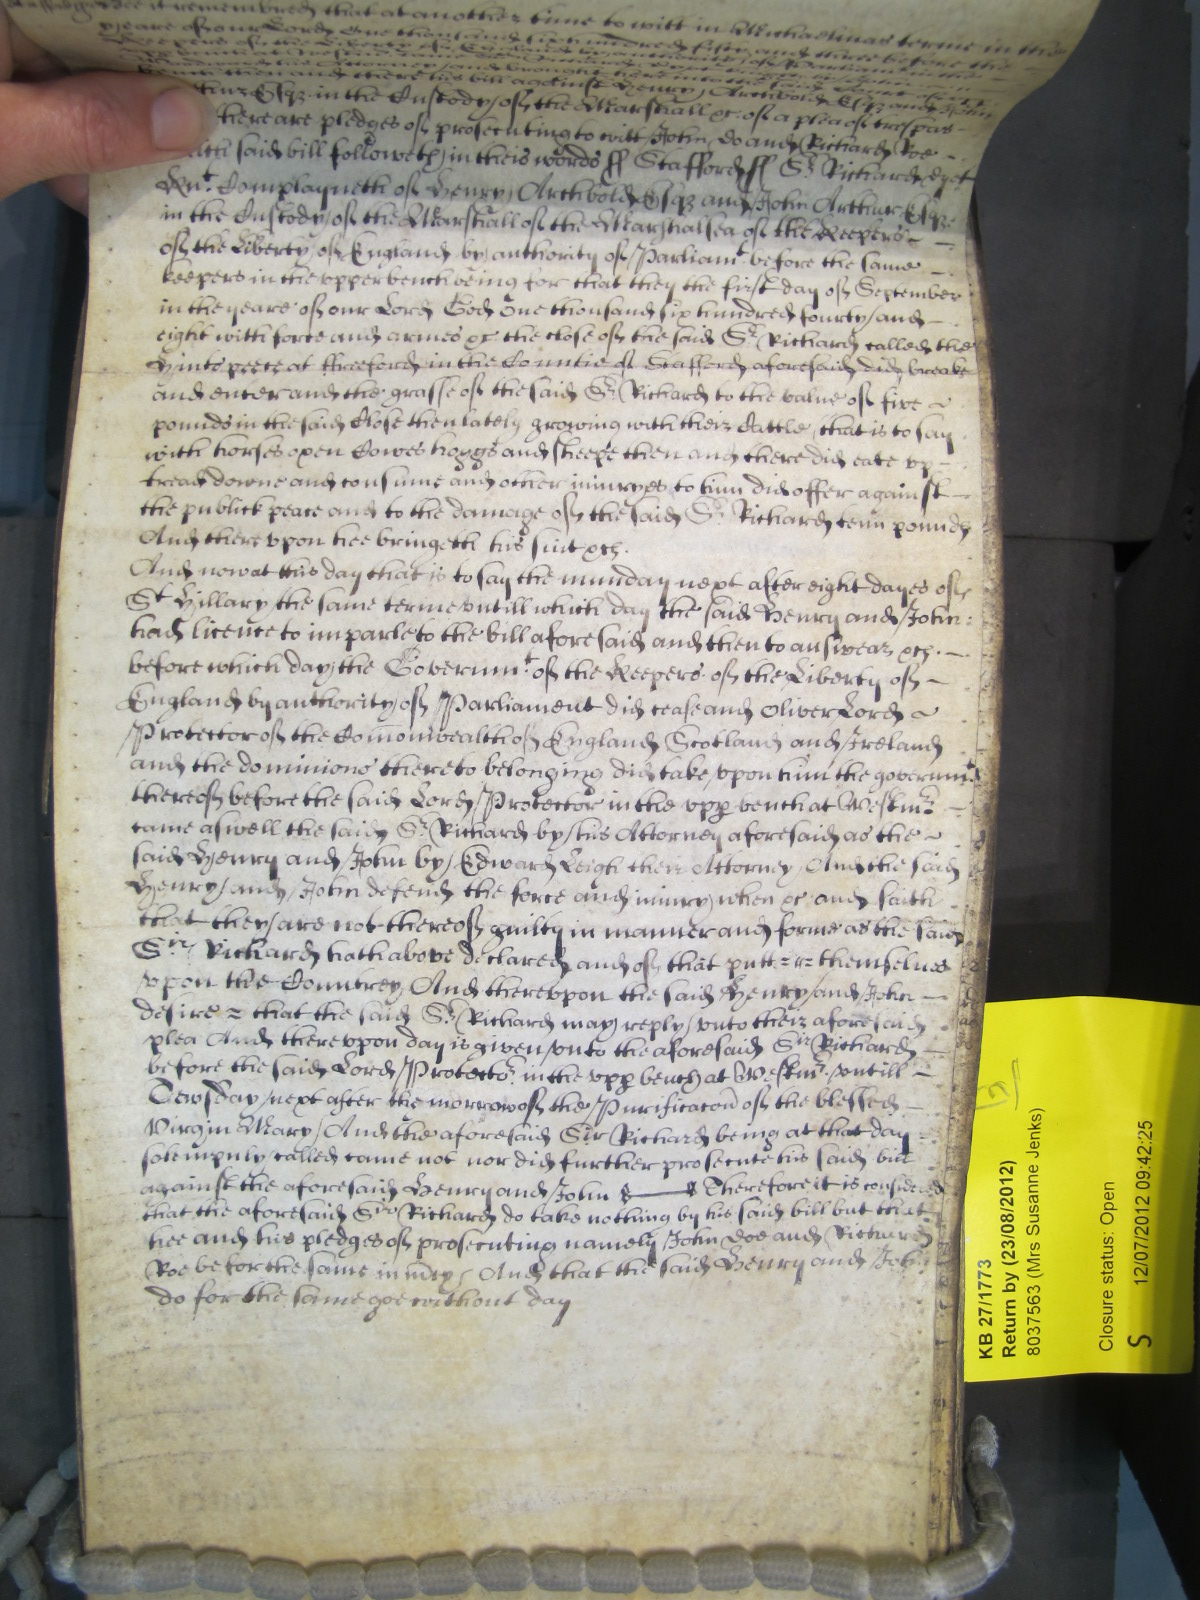 Bee it remembred that at another time to witt in Michaelmas terme in the
yeare of our Lord One thousand six hundred fifty and three before the
Keepers of the Liberty of England by authority of Parliament
his Attorney and brought here into the said Court
then and there his bill against Henry Archbold Esqr and John
Esqr in the Custody of the Marshall &c of a plea of trespas
there are pledges of prosecuting to witt John do and Richard Roe
said bill followeth in theis words ss Stafford ss Sr Richard
Knt Complayneth of Henry Archbold Esqr and John Arthur Esqr
in the Custody of the Marshall of the Marshalsea of the Keepers
of the Liberty of England by authority of Parliamt before the same
keepers in the vpper bench being for that they the first day of September
in the yeare of our Lord God One thousand six hundred fourty and
eight with force and armes &c the close of the said Sr Richard called the
peece at in the Countie of Stafford aforesaid did breake
and enter and the grasse of the said Sr Richard to the value of five
pounds in the said Close then lately growing with their Cattle that is to say
with horses oxen Cowes hoggs and sheepe then and there did eate vp
tread downe and consume and other iniuryes to him did offer against
the publick peace and to the damage of the said Sr Richard tenn pounds
And therevpon hee bringeth his suit &ch.
And now at this day that is to say the munday next after eight dayes of
St Hillary the same terme vntill which day the said Henry and John
had licence to imparle to the bill aforesaid and then to answear &ch.
before which day the Governmt of the Keepers of the Liberty of
England by authority of Parliament did cease and Oliver Lord
Protector of the Comonwealth of England Scotland and Ireland
and the dominions thereto belonging did take vpon him the governmt
thereof before the said Lord Protector in the vpp bench at Westmr
came aswell the said Sr Richard by his Attorney aforesaid as the
said Henry and John by Edward Leigh their Attorney And the said
Henry and John defend the force and iniury when &c and saith
that they are not thereof guilty in manner and forme as the said
Sir Richard hath above declared and of that putt themselues
vpon the Countrey And therevpon the said Henry and John
desire that the said Sr Richard may reply vnto their aforesaid
plea And therevpon day is given vnto the aforesaid Sir Richard
before the said Lord Protector in the vpp bench at Westmr vntill
Tewsday next after the morrow of the Purificacon of the blessed
Virgin Mary And the aforesaid Sir Richard being at that day
solempnly called came not nor did further prosecute his said bill
against the aforesaid Henry and John Therefore it is considered
that the aforesaid Sir Richard do take nothing by his said bill but that
hee and his pledges of prosecuting namely John doe and Richard
Roe be for the same in mcy And that the said Henry and John
do for the same goe without day
KB 27/1773
Return by (23/08/2012)
8037563 (Mrs Susanne Jenks)
Closure status: Open
S 12/07/2012 09:42:25